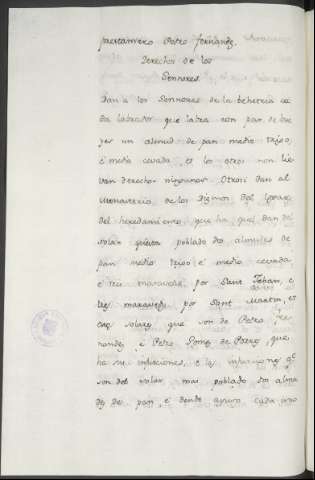 pertenesce Pedro fernandez
Derechos de los
Sennores
Dan a los Sennores de la behetria ca
da labrador que labra con par de bue
yes un almud de pan medio trigo,
e medio cevada, et los otros non lie
van derechos ningunos. Otrosi dan al
Monasterio de los
del heredamiento que ha que dan del
solar poblado dos almudes de
pan medio trigo e medio cevada
e tres maravedis por Sant Johan, e
tres maravedis por Sant Martin, et
solares que son de Pedro Fer
nandez e Pedro Gomez de Porras que
ha su infurciones, e las infurciones q
son del solar mas poblado dos almu
des de pan, e dende ayuso cada uno